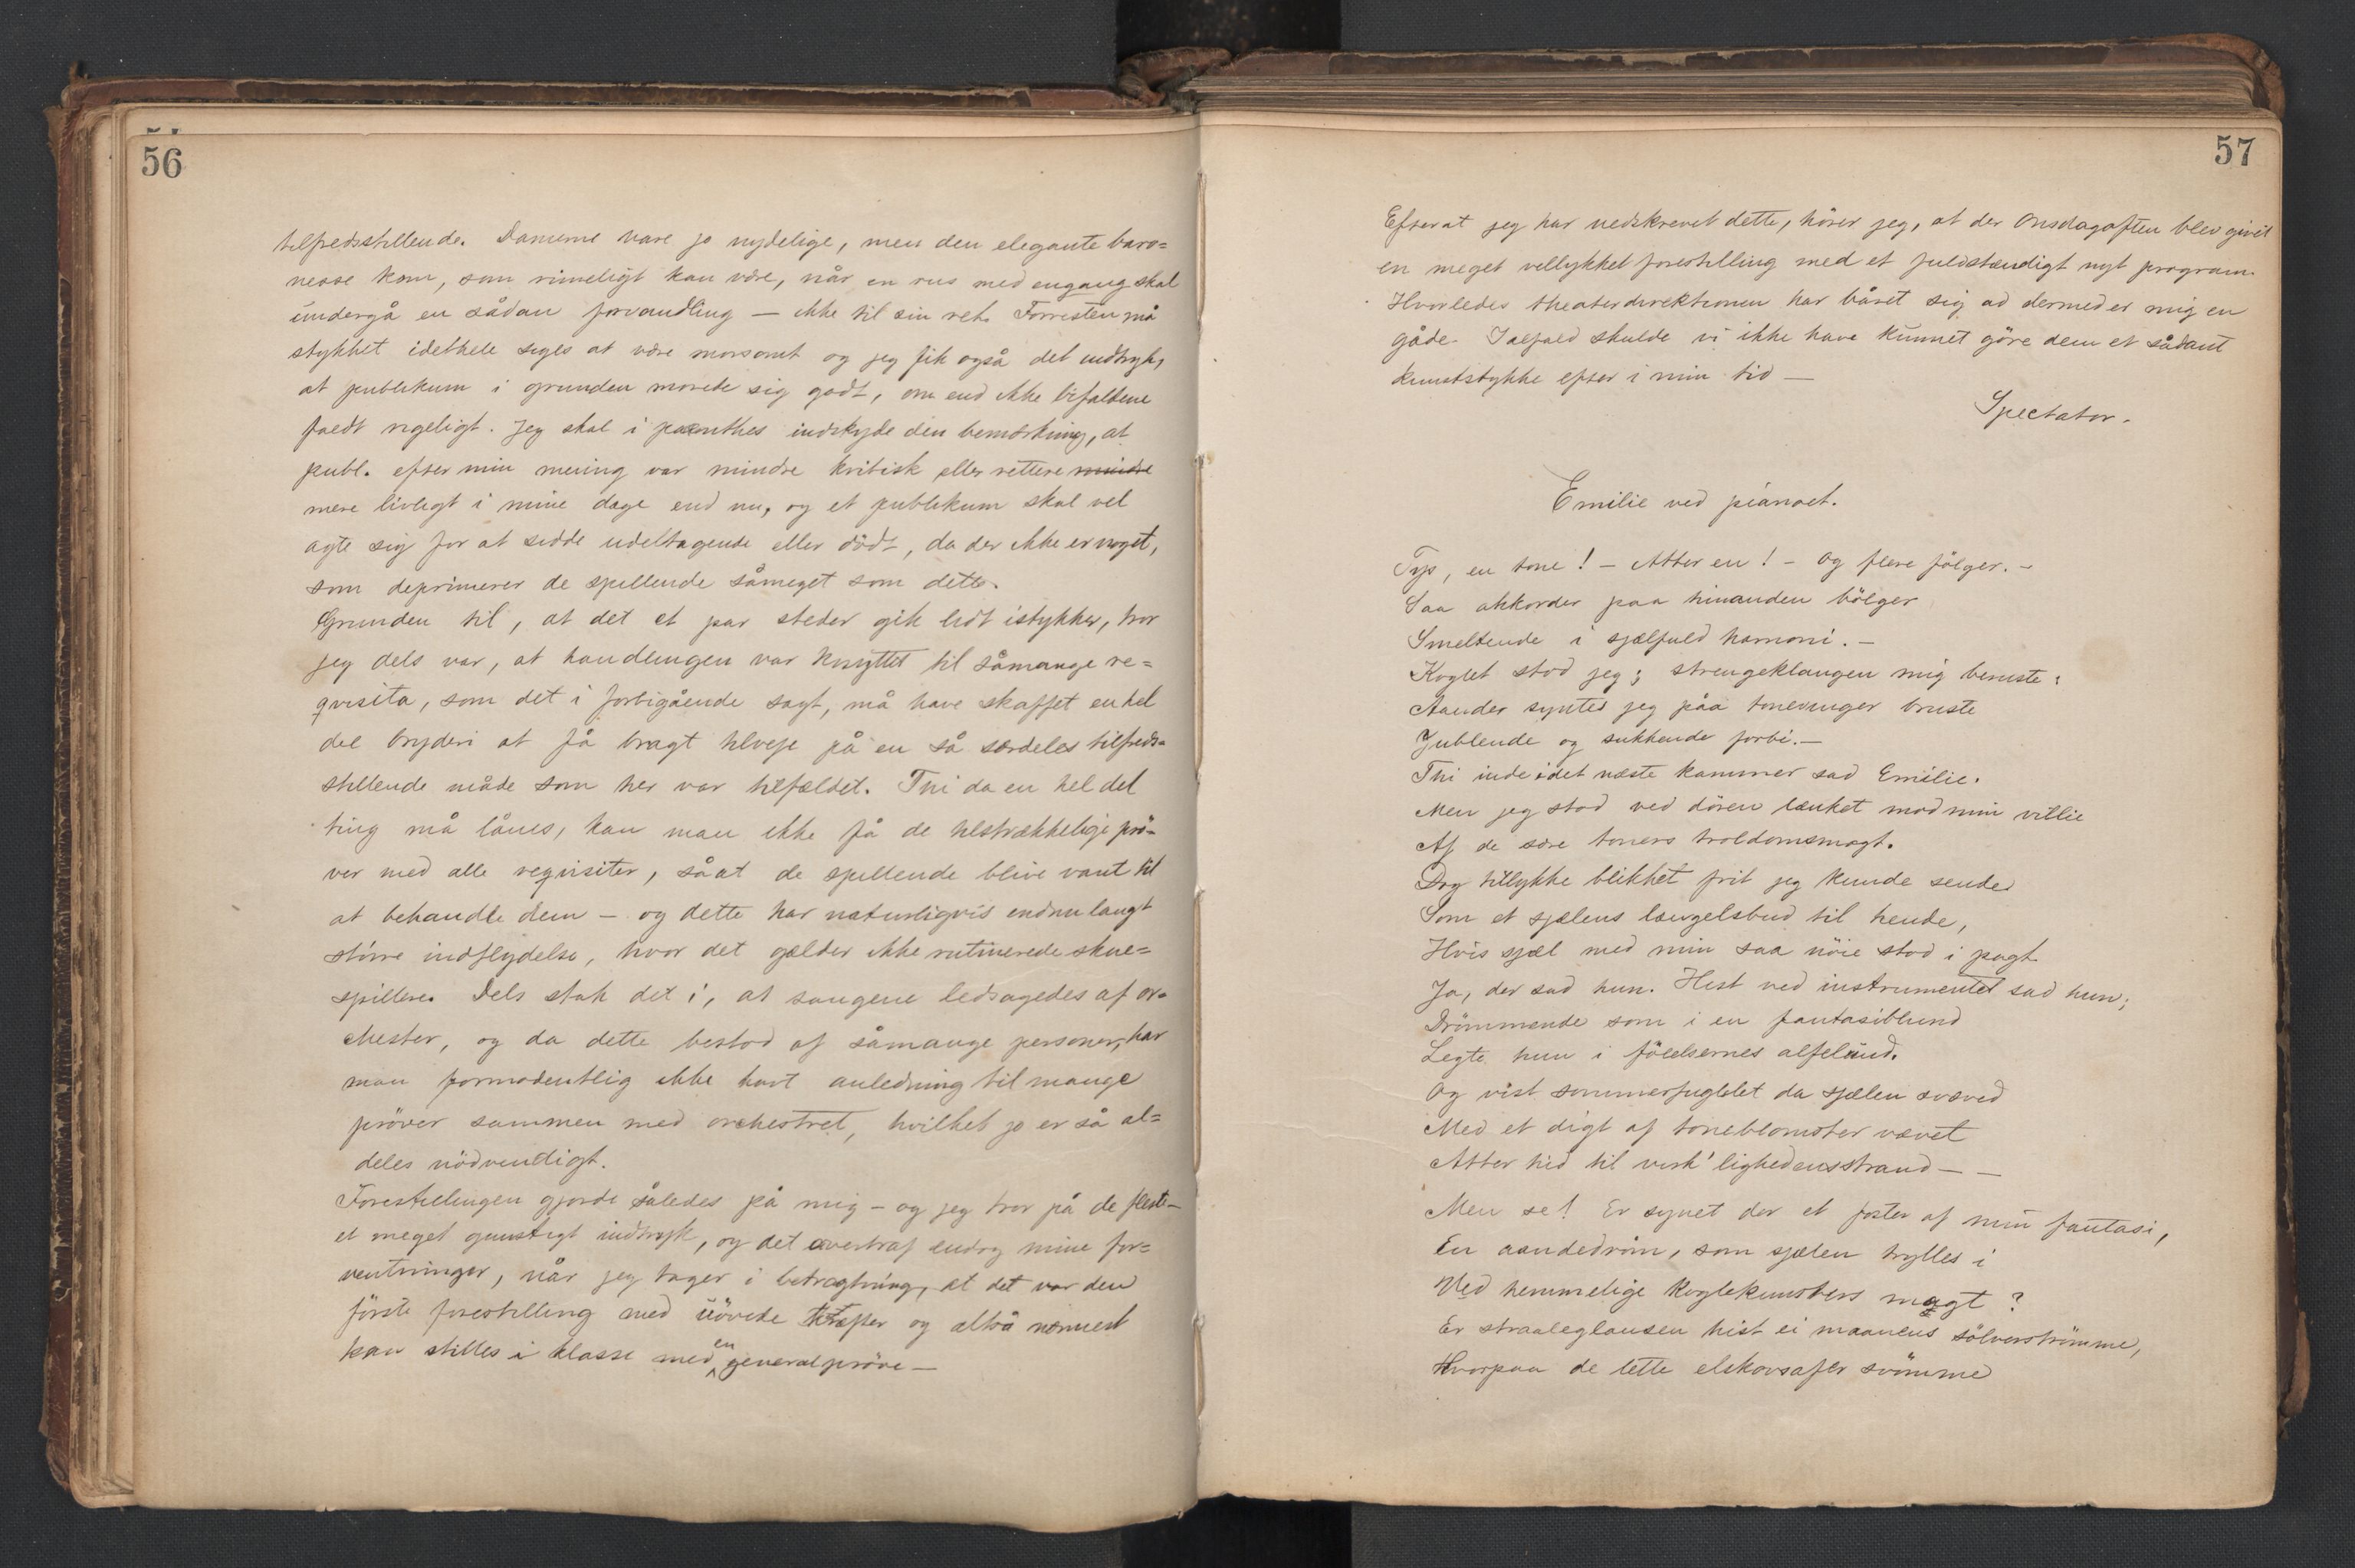 56
tilfredsstillende. Damerne vare jo nydelige, men den elegante baro=
nesse kom, som rimeligt kan være, når en rus med engang skal
undergå en sådan forvandling — ikke til sin ret. Forresten må
stykket idethele siges at være morsomt og jeg fik også det indtryk,
at publikum i grunden morede sig godt, om end ikke bifaldene
faldt rigeligt. Jeg skal i parenthes indskyde den bemærkning, at
publ. efter min mening var mindre kritisk eller rettere mindre
mere livligt i mine dage end nu, og et publikum skal vel
agte sig for at sidde udeltagende eller dödt, da der ikke er noget,
som deprimerer de spillende såmeget som dette.
Grunden til, at det et par steder gik lidt istykker, tror
jeg dels var, at handlingen var knyttet til såmange re=
qvisita, som det i forbigående sagt, må have skaffet en hel
del bryderi at få bragt tilveje på en så særdeles tilfreds=
stillende måde som her var tilfældet. Thi da en hel del
ting må lånes, kan man ikke få de tilstrækkelige prö=
ver med alle reqvisiter, såat de spillende blive vant til
at behandle dem — og dette har naturligvis endnu langt
större indflydelse, hvor det gælder ikke rutinerede skue=
spillere. Dels stak det i, at sangene ledsagedes af or=
chester, og da dette bestod af såmange personer, har
man formodentlig ikke havt anledning til mange
pröver sammen med orchestret, hvilket jo er så al=
deles nödvendigt.
Forestillingen gjorde således på mig — og jeg tror på de fleste —
et meget gunstigt indtryk, og det overtraf endog mine for=
ventninger, når jeg tager i betragtning, at det var den
förste forestilling med uövede kræfter og altså nærmest
kan stilles i klasse med en generalpröve —
57
Efterat jeg har nedskrevet dette, hörer jeg, at der Onsdagaften blev givet
en meget vellykket forestilling med et fuldstændigt nyt program.
Hvorledes theaterdirektionen har båret sig ad dermed er mig en
gåde. Ialfald skulde vi ikke have kunnet göre dem et sådant
kunststykke efter i min tid —
Spectator.
Emilie ved pianoet.
Tys, en tone! — Atter en! — og flere fölger. —
Saa akkorder paa hinanden bölger
Smeltende i sjælfuld harmoni. —
Koglet stod jeg; strengeklangen mig beruste:
Aander syntes jeg paa tonevinger bruste
Jublende og sukkende forbi. —
Thi inde i det næste kammer sad Emilie.
Men jeg stod ved dören lænket mod min villie
Af de sære toners troldomsmagt.
Dog tillykke blikket frit jeg kunde sende
Som et sjælens længelsbud til hende,
Hvis sjæl med min saa nöie stod i pagt.
Ja, der sad hun. Hist ved instrumentet sad hun;
Drömmende som i en fantasiblund
Legte hun i fölelsernes alfelund.
Og vist sommerfuglelet da sjælen svæved
Med et digt af toneblomster vævet
Atter hid til virk'lighedensstrand — —
Men se! Er synet der et foster af min fantasi,
En aandedröm, som sjælen hylles i
Ved hemmelige koglekunsters magt?
Er straaleglansen hist ei maanens sölverströmme,
Hvorpaa de lette elskovsalfer svömme